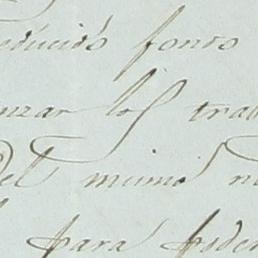 reducido fondo
nzar los trab
del mismo n
para poder